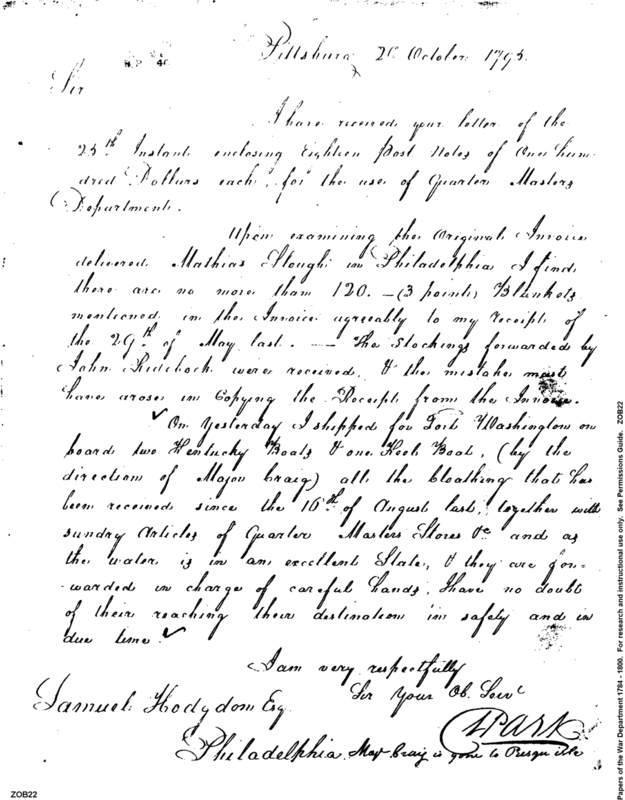 Pittsburg October 1795.
Sir
I have received your letter of the
25th Instant enclosing Eighteen Post Notes of One hun-
dred Dollars each, for the use of Quarter Masters
Department.
Upon examining the Original Invoice
delivered Mathias Slough in Philadelphia I find
there are no more than 120. — (3 point) Blankets
mentioned in the Invoice agreeably to my receipt of
the 29th of May last. — The Stockings forwarded by
John were received, & the mistake must
have arose in Copying the Receipt from the Invoice.
On Yesterday I shipped for Fort Washington on
board two Kentucky Boats & one Keel Boat, (by the
direction of Major Craig) all the Cloathing that has
been received since the 16th of August last, together with
sundry Articles of Quarter Masters Stores &c and as
the water is in an excellent State, & they are for-
warded in charge of careful hands, I have no doubt
of their reaching their destination in safety and in
due time.
I am very respectfully
Sir Your Ob. Serv
Samuel Hodgdon Esq.
Philadelphia. Maj. Craig is gone to Presqu isle
Papers of the War Department 1784 - 1800. For research and instructional use only. See Permissions Guide. ZOB22
ZOB22